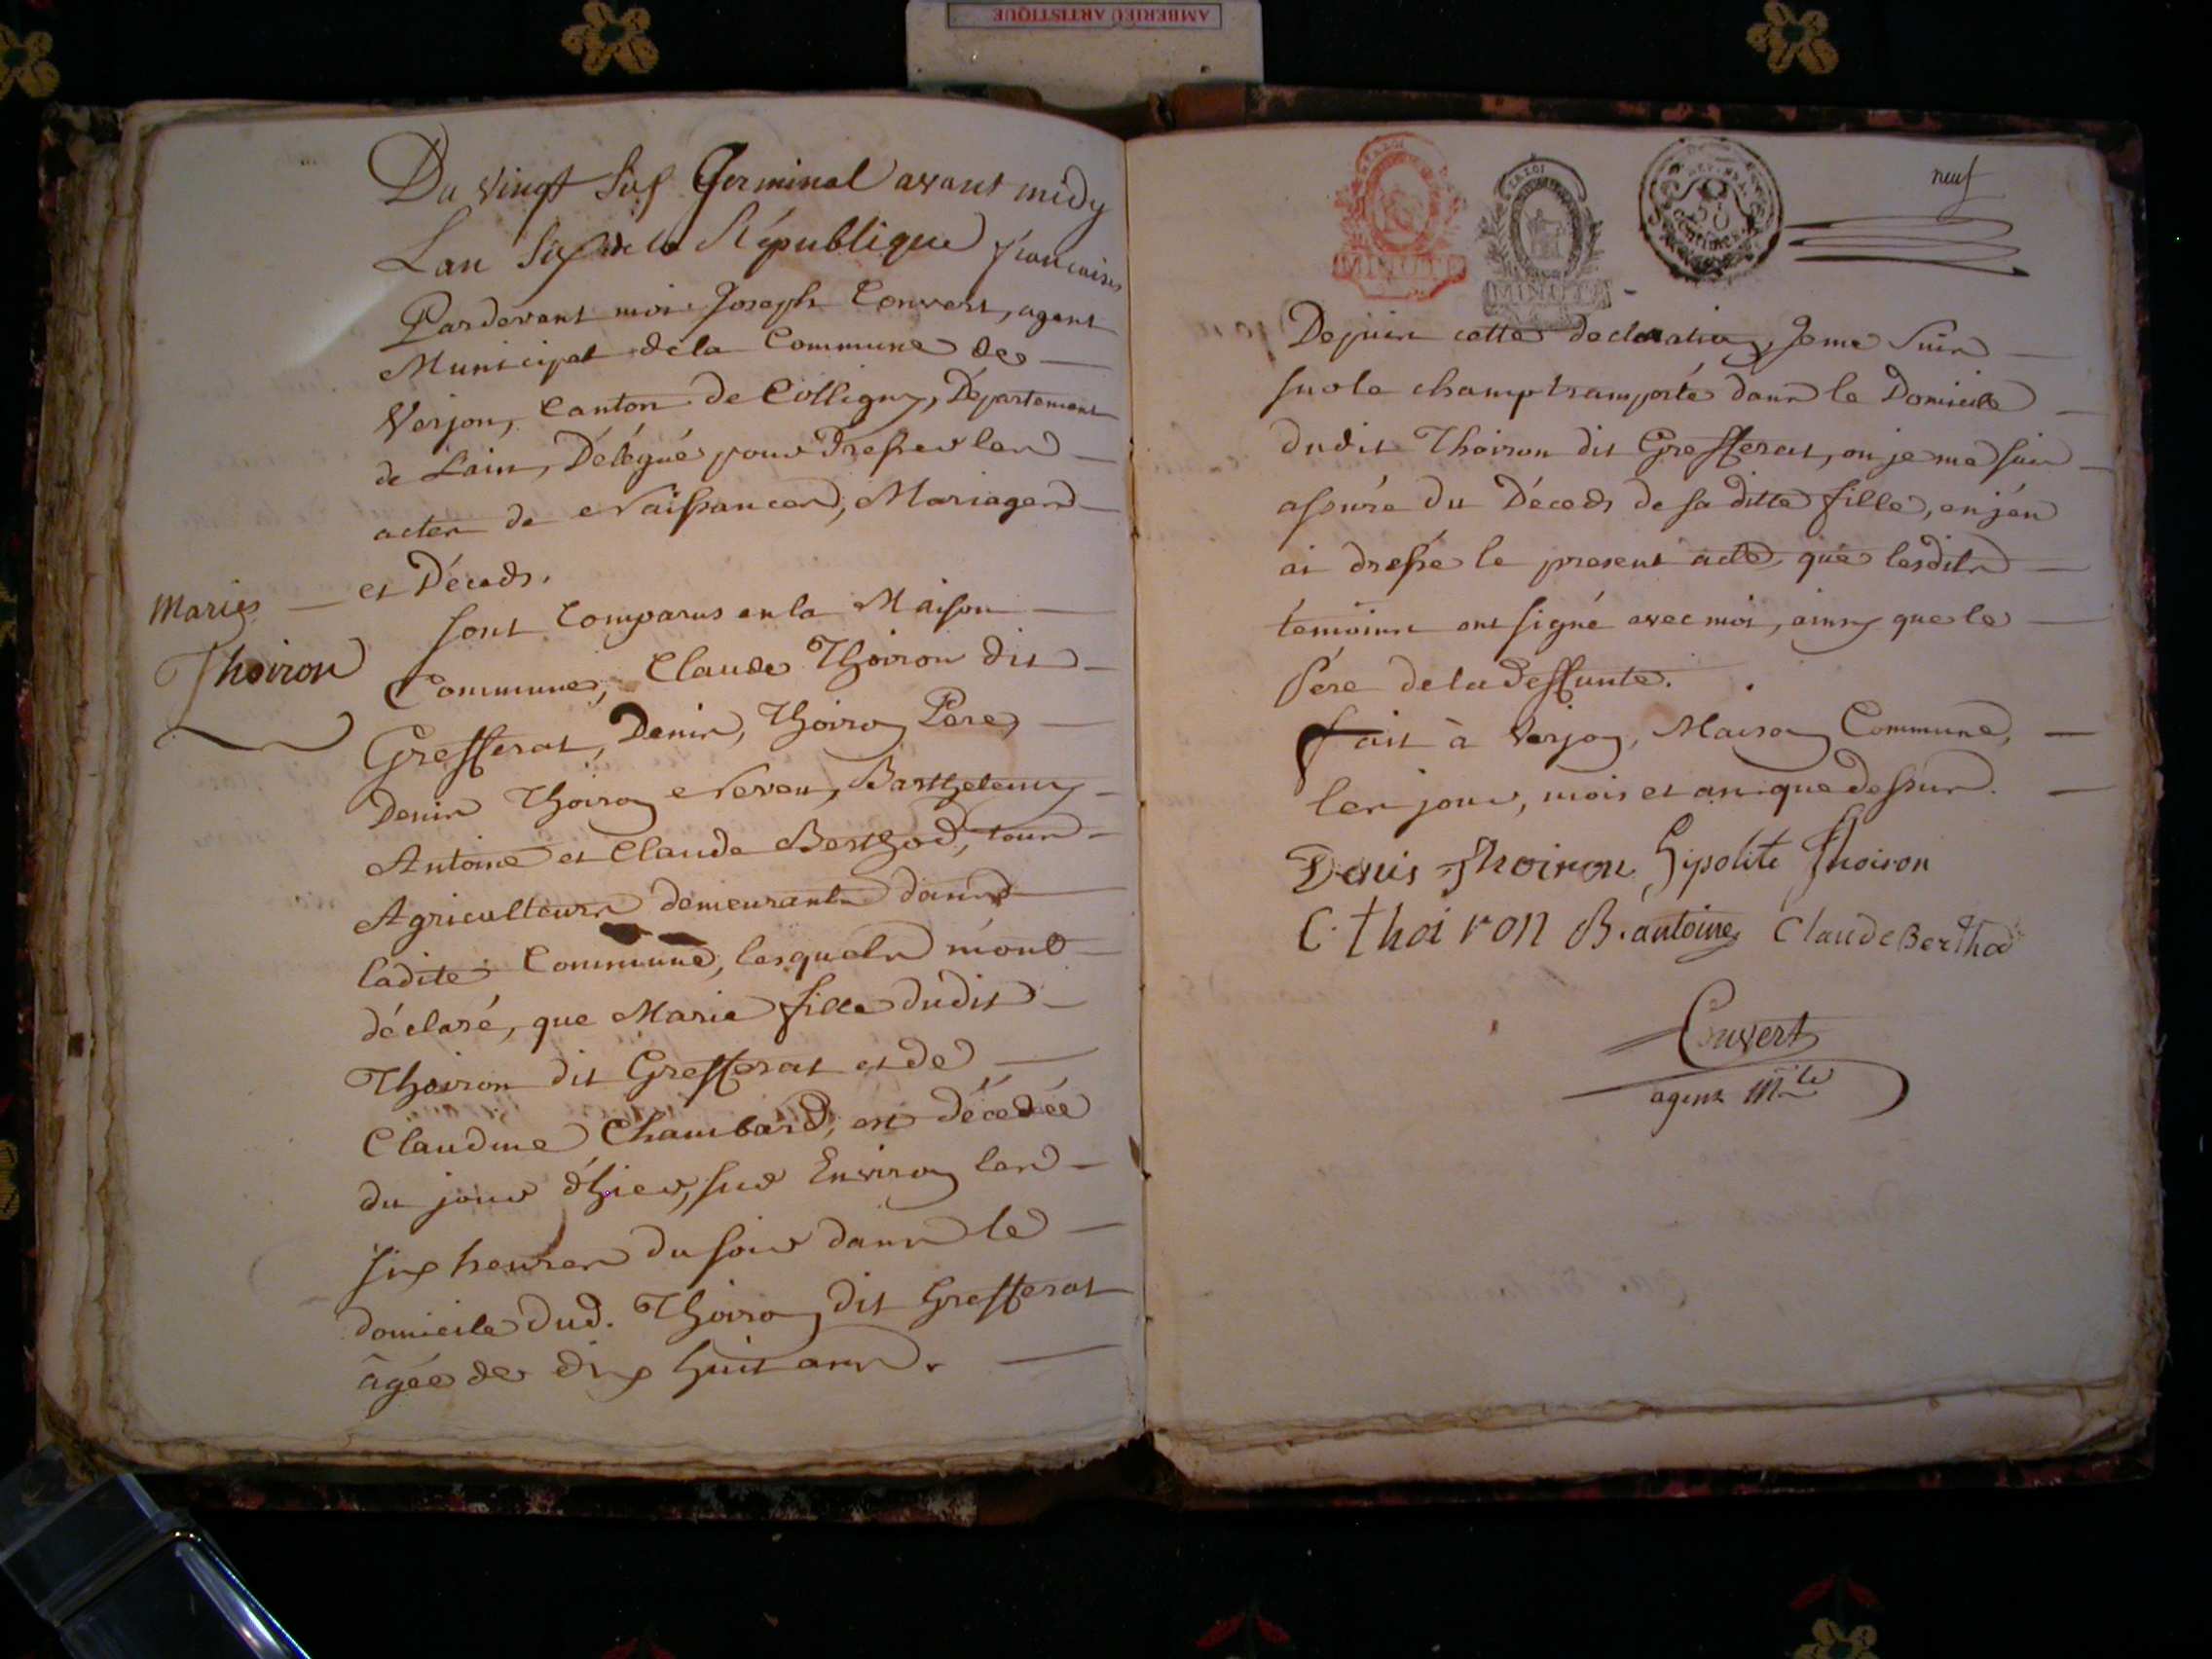 AMBERIEU ARTISTIQUE
Du vingt six Germinal avant midy
Lan Six de la République francaise
Pardevant moi Joseph Convert, agent
Municipal de la Commune de
Verjon, Canton de Colligny, Département
de Lain, Délégué pour dresser les
actes de Naissances, Mariages
et Déceds.
Marie
Thoiron
sont Comparus en la Maison
Commune, Claude Thoiron dit
Grefferat, Denis Thoiron Pere,
Denis Thoiron Neveu, Barthelemy
Antoine et Claude Berthod, tous
Agriculteurs demeurants dans
ladite Commune, lesquels m'ont
déclaré, que Marie fille dudit
Thoiron dit Grefferat et de
Claudine Chambard, est décedée
du jour d'hier, sur Environ les
six heures du soir dans le
domicile dud. Thoiron dit Grefferat
âgée de dix huit ans.
MINUTE
MINUTE
50
Centimes
neuf
Depuis cette declaration, Je me suis
sur le champ transporté dans le Domicile
dudit Thoiron dit Grefferat, ou je me suis
assuré du Déceds de sa ditte fille, et j'en
ai dressé le present acte, que lesdits
témoins ont signé avec moi, ainsy que le
Père de la deffunte.
fait à Verjon, Maison Commune,
les jour, mois et an que dessus.
Denis Thoiron Hipolite Thoiron
C. thoiron B. antoine Claude Berthod
Convert
agent m.le